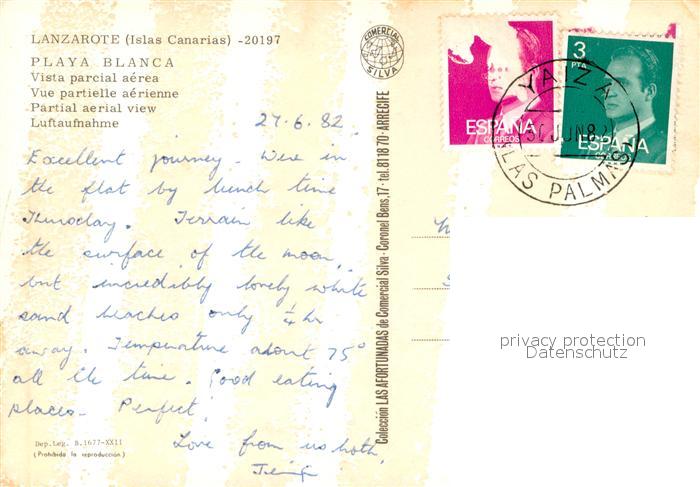 LANZAROTE (Islas Canarias) -20197
PLAYA BLANCA
Vista parcial aérea
Vue partielle aérienne
Partial aerial view
Luftaufnahme
27.6.82
Excellent journey. Were in
the flat by lunch time
Thursday. Terrain like
the surface of the moon,
but incredibly lovely white
sand beaches only ¼ hr
away. Temperature about 75°
all the time. Good eating
places. Perfect!
Love from us both,
Dep.Leg. B.1677-XXII
(Prohibida la reproducción)
Colección LAS AFORTUNADAS de Comercial Silva · Coronel Bens, 17 · tel. 81 18 70 · ARRECIFE
COMERCIAL
SILVA
ESPAÑA
CORREOS
3
PTA
ESPAÑA
YAIZA
30 JUN 82
LAS PALMAS
privacy protection
Datenschutz